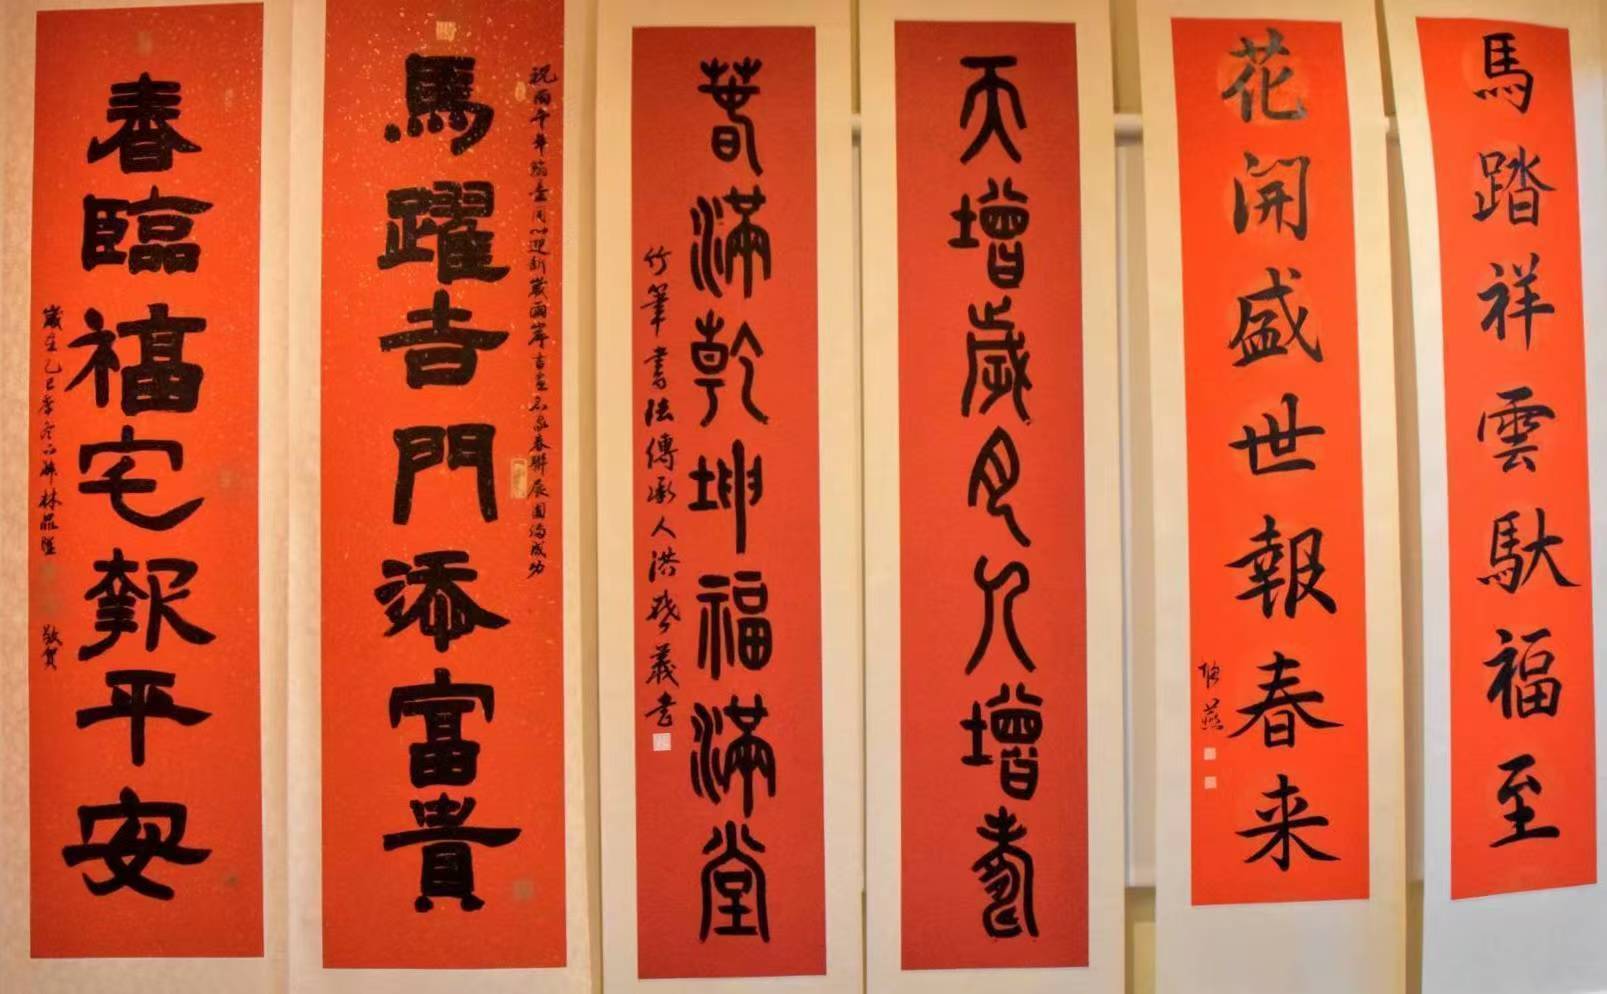 馬踏祥雲馱福至
花開盛世報春来
燕
天增歲月人增壽
春滿乾坤福滿堂
竹筆書法傳承人洪啓義書
馬躍吉門添富貴
祝丙午年翰墨同心迎新歲兩岸書畫名家春聯展圓滿成功
春臨福宅報平安
歲在乙巳季冬
林
敬賀